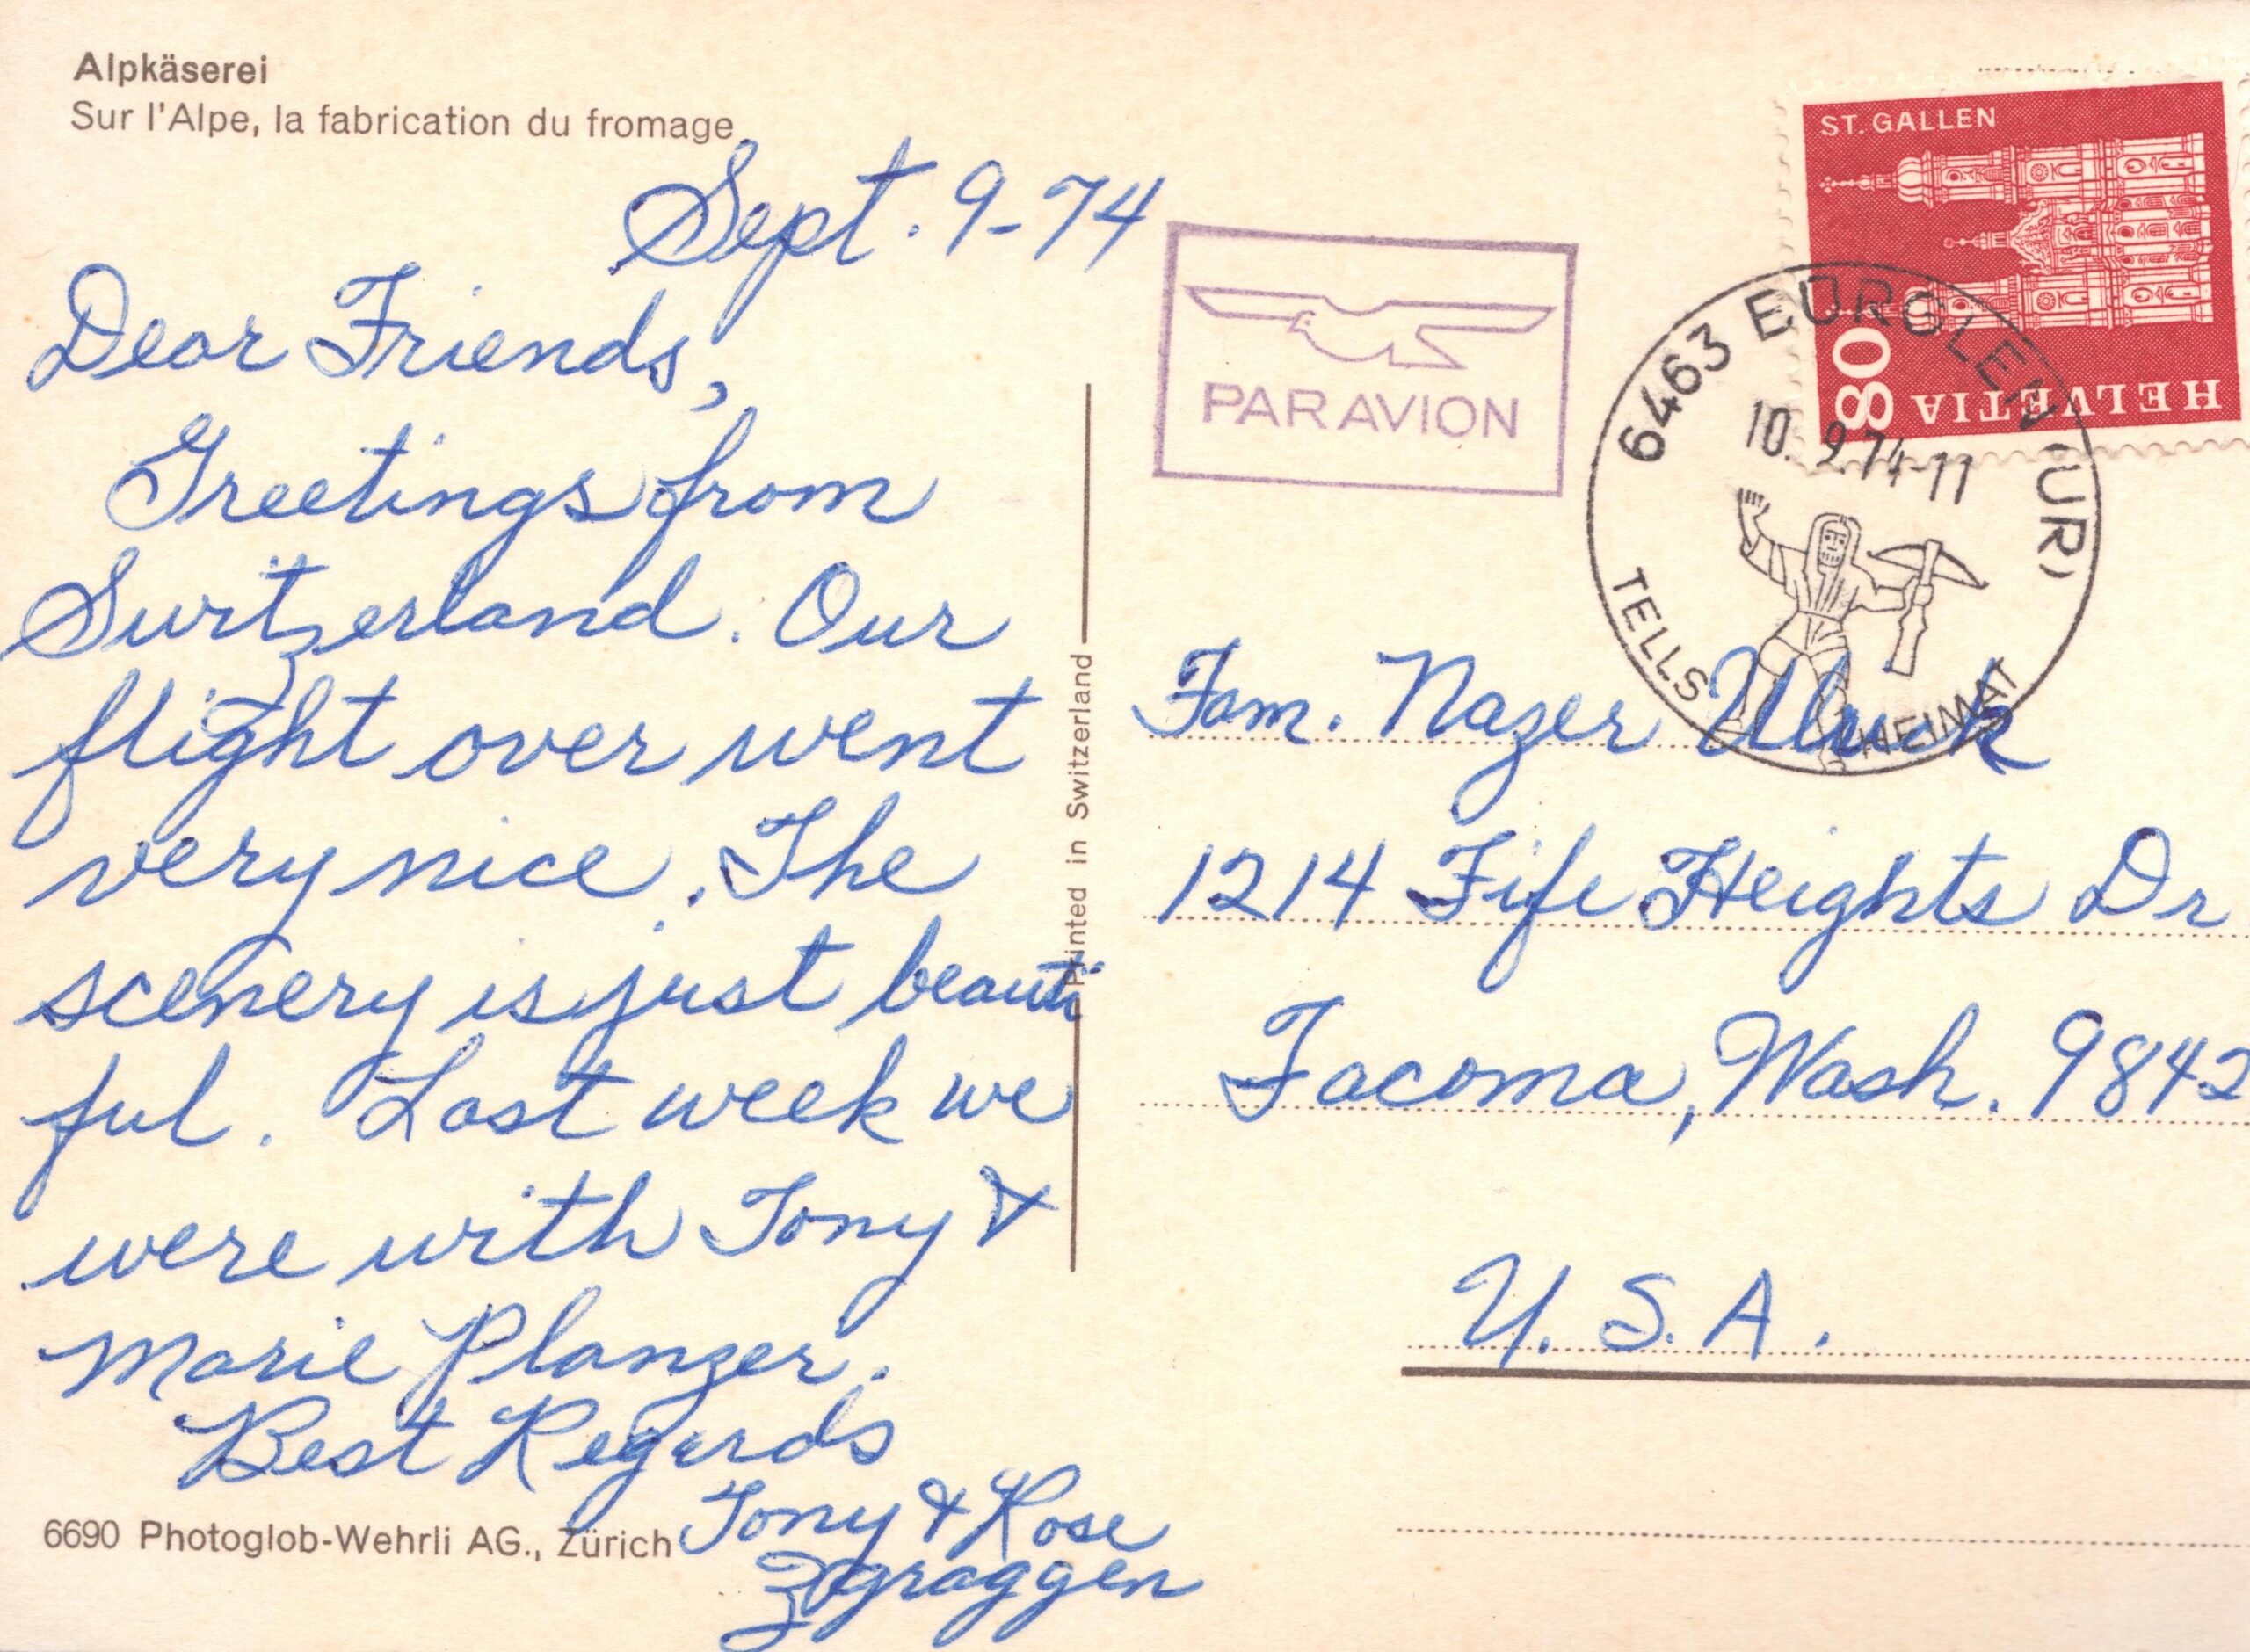 Alpkäserei
Sur l'Alpe, la fabrication du fromage
Sept. 9-74
Dear Friends,
Greetings from
Switzerland. Our
flight over went
very nice. The
scenery is just beauti
ful. Last week we
were with Tony &
Marie Planzer.
Best Regards
Tony & Rose
Zgraggen
6690 Photoglob-Wehrli AG., Zürich
Printed in Switzerland
PAR AVION
ST. GALLEN
80
HELVETIA
6463 BÜRGLEN (UR)
10. 9.74-11
TELLS HEIMAT
Fam. Nazer
1214 Fife Heights Dr
Tacoma, Wash. 9842
U. S. A.